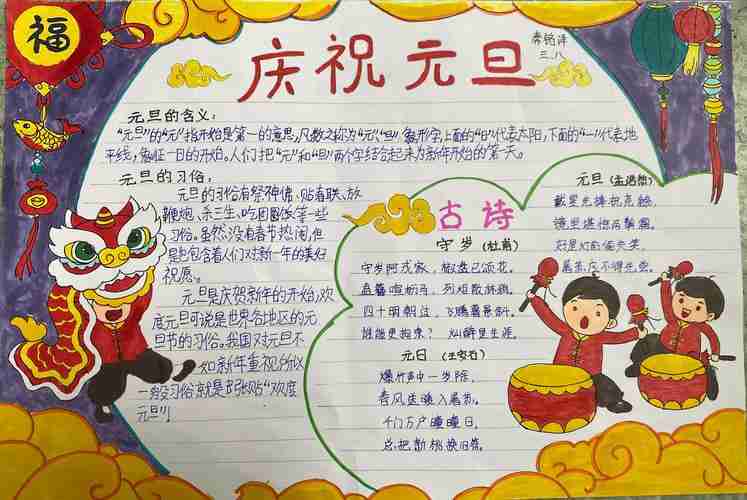 福
庆祝元旦
三.八
元旦的含义:
"元旦"的"元"指开始是第一的意思,凡数之称为"元","旦"象形字,上面的"日"代表太阳,下面的"一"代表地
平线,象征一日的开始。人们把"元"和"旦"两个字结合起来为新年开始的第一天。
元旦的习俗:
元旦的习俗有祭神佛、贴春联、放
鞭炮、杀三生、吃团圆饭等一些
习俗。虽然没有春节热闹,但
是也包含着人们对新一年的美好
祝愿。
元旦是庆贺新年的开始,欢
度元旦可说是世界各地区的元
旦节的习俗。我国对元旦不
如新年重视所以
一般习俗就是张贴"欢度
元旦"!
古诗
守岁(杜甫)
守岁阿戎家,椒盘已颂花。
盍簪喧枥马,列炬散林鸦。
四十明朝过,飞腾暮景斜。
谁能更拘束?烂醉是生涯。
元日(王安石)
爆竹声中一岁除,
春风送暖入屠苏。
千门万户曈曈日,
总把新桃换旧符。
元旦
戴星先捧祝尧觞,
镜里堪惊两鬓霜。
好是灯前偷失笑,
屠苏应不得先尝。